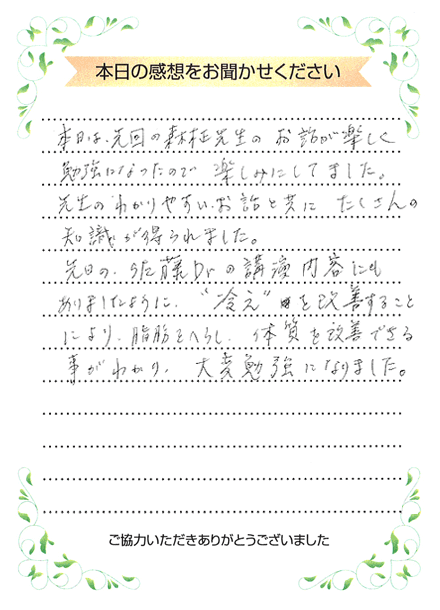 本日の感想をお聞かせください
本日は、先回の森村先生の お話が楽しく
勉強になったので 楽しみにしてました。
先生の わかりやすいお話と共に たくさんの
知識が得られました。
先日の、佐藤Drの講演内容にも
ありましたように、"冷え" を改善すること
により、脂肪をへらし、体質を改善できる
事がわかり、大変勉強になりました。
ご協力いただきありがとうございました